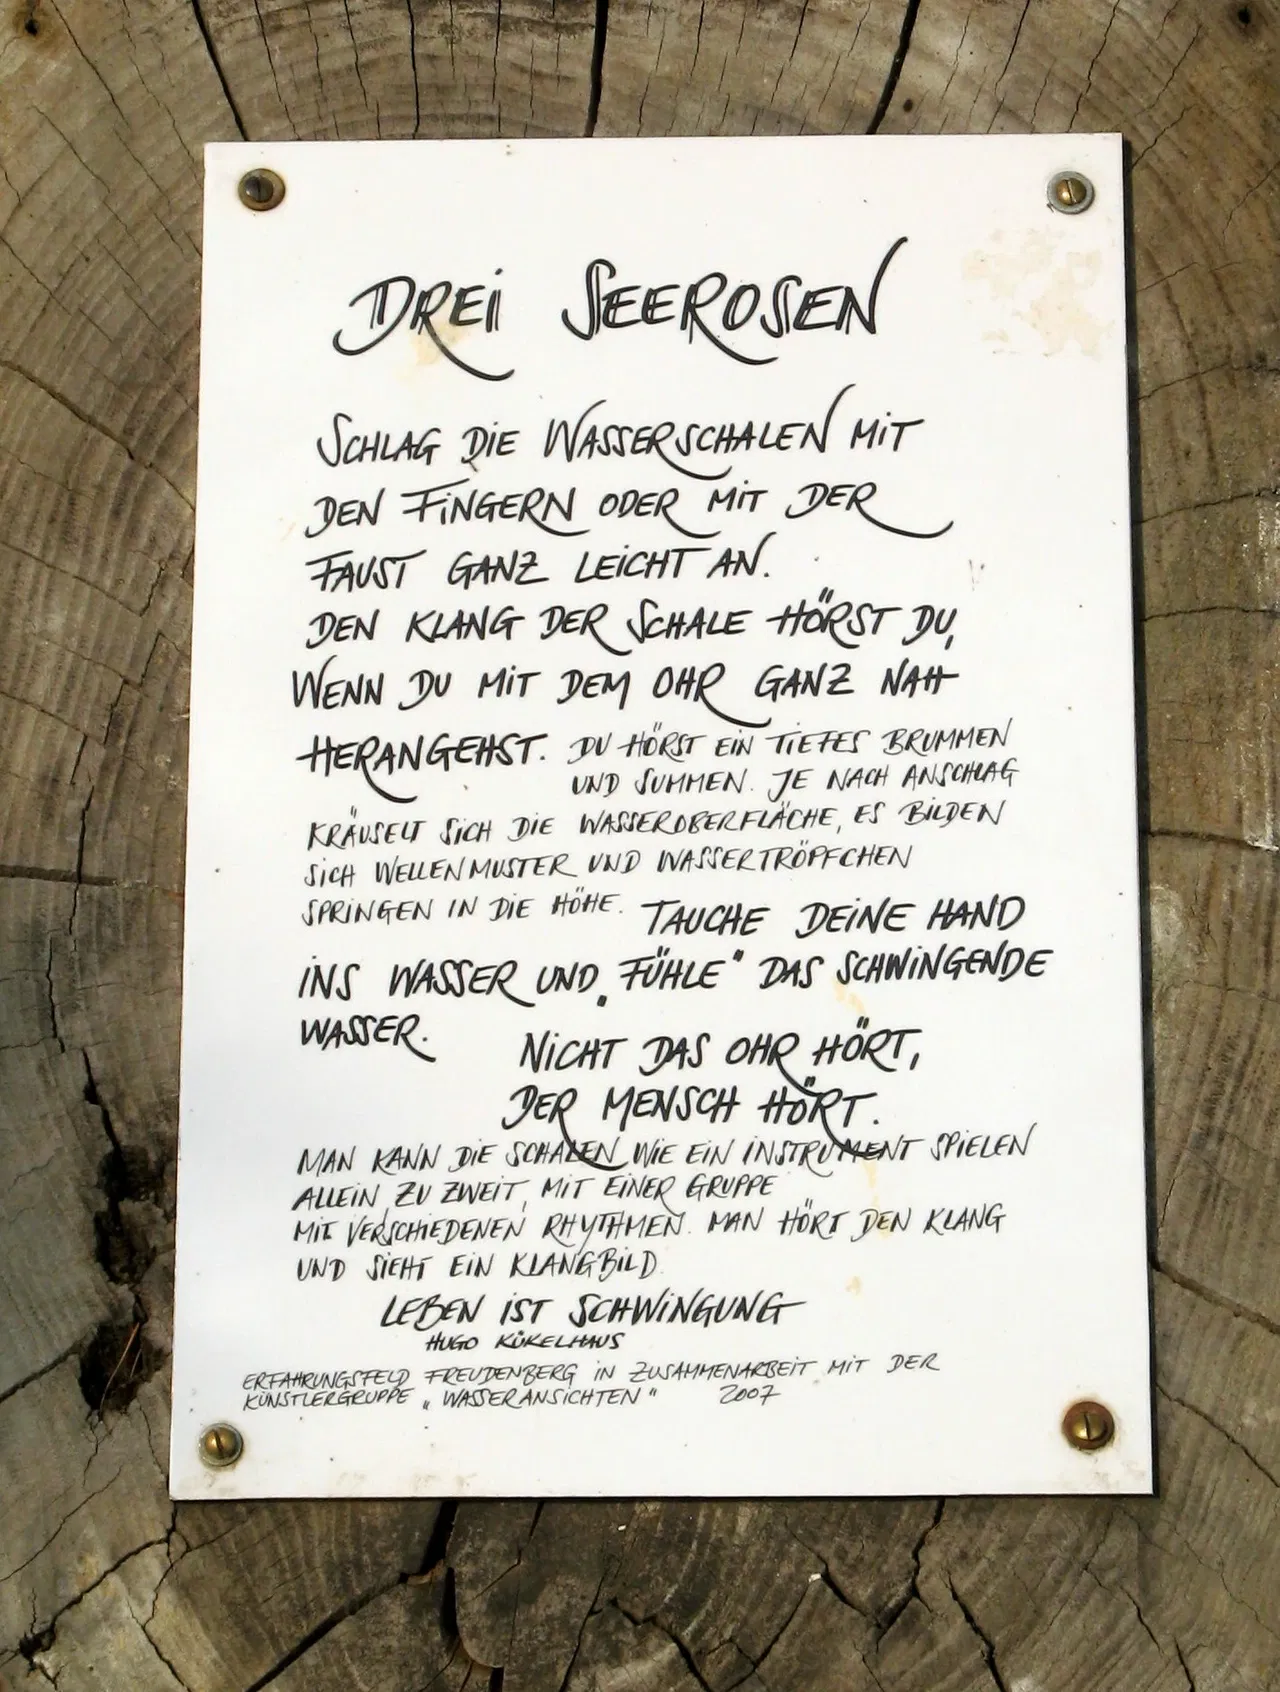 DREI SEEROSEN
SCHLAG DIE WASSERSCHALEN MIT
DEN FINGERN ODER MIT DER
FAUST GANZ LEICHT AN.
DEN KLANG DER SCHALE HÖRST DU,
WENN DU MIT DEM OHR GANZ NAH
HERANGEHST. DU HÖRST EIN TIEFES BRUMMEN
UND SUMMEN. JE NACH ANSCHLAG
KRÄUSELT SICH DIE WASSEROBERFLÄCHE, ES BILDEN
SICH WELLENMUSTER UND WASSERTRÖPFCHEN
SPRINGEN IN DIE HÖHE. TAUCHE DEINE HAND
INS WASSER UND „FÜHLE" DAS SCHWINGENDE
WASSER.
NICHT DAS OHR HÖRT,
DER MENSCH HÖRT.
MAN KANN DIE SCHALEN WIE EIN INSTRUMENT SPIELEN
ALLEIN, ZU ZWEIT, MIT EINER GRUPPE
MIT VERSCHIEDENEN RHYTHMEN. MAN HÖRT DEN KLANG
UND SIEHT EIN KLANGBILD.
LEBEN IST SCHWINGUNG
HUGO KÜKELHAUS
ERFAHRUNGSFELD FREUDENBERG IN ZUSAMMENARBEIT MIT DER
KÜNSTLERGRUPPE „WASSERANSICHTEN" 2007